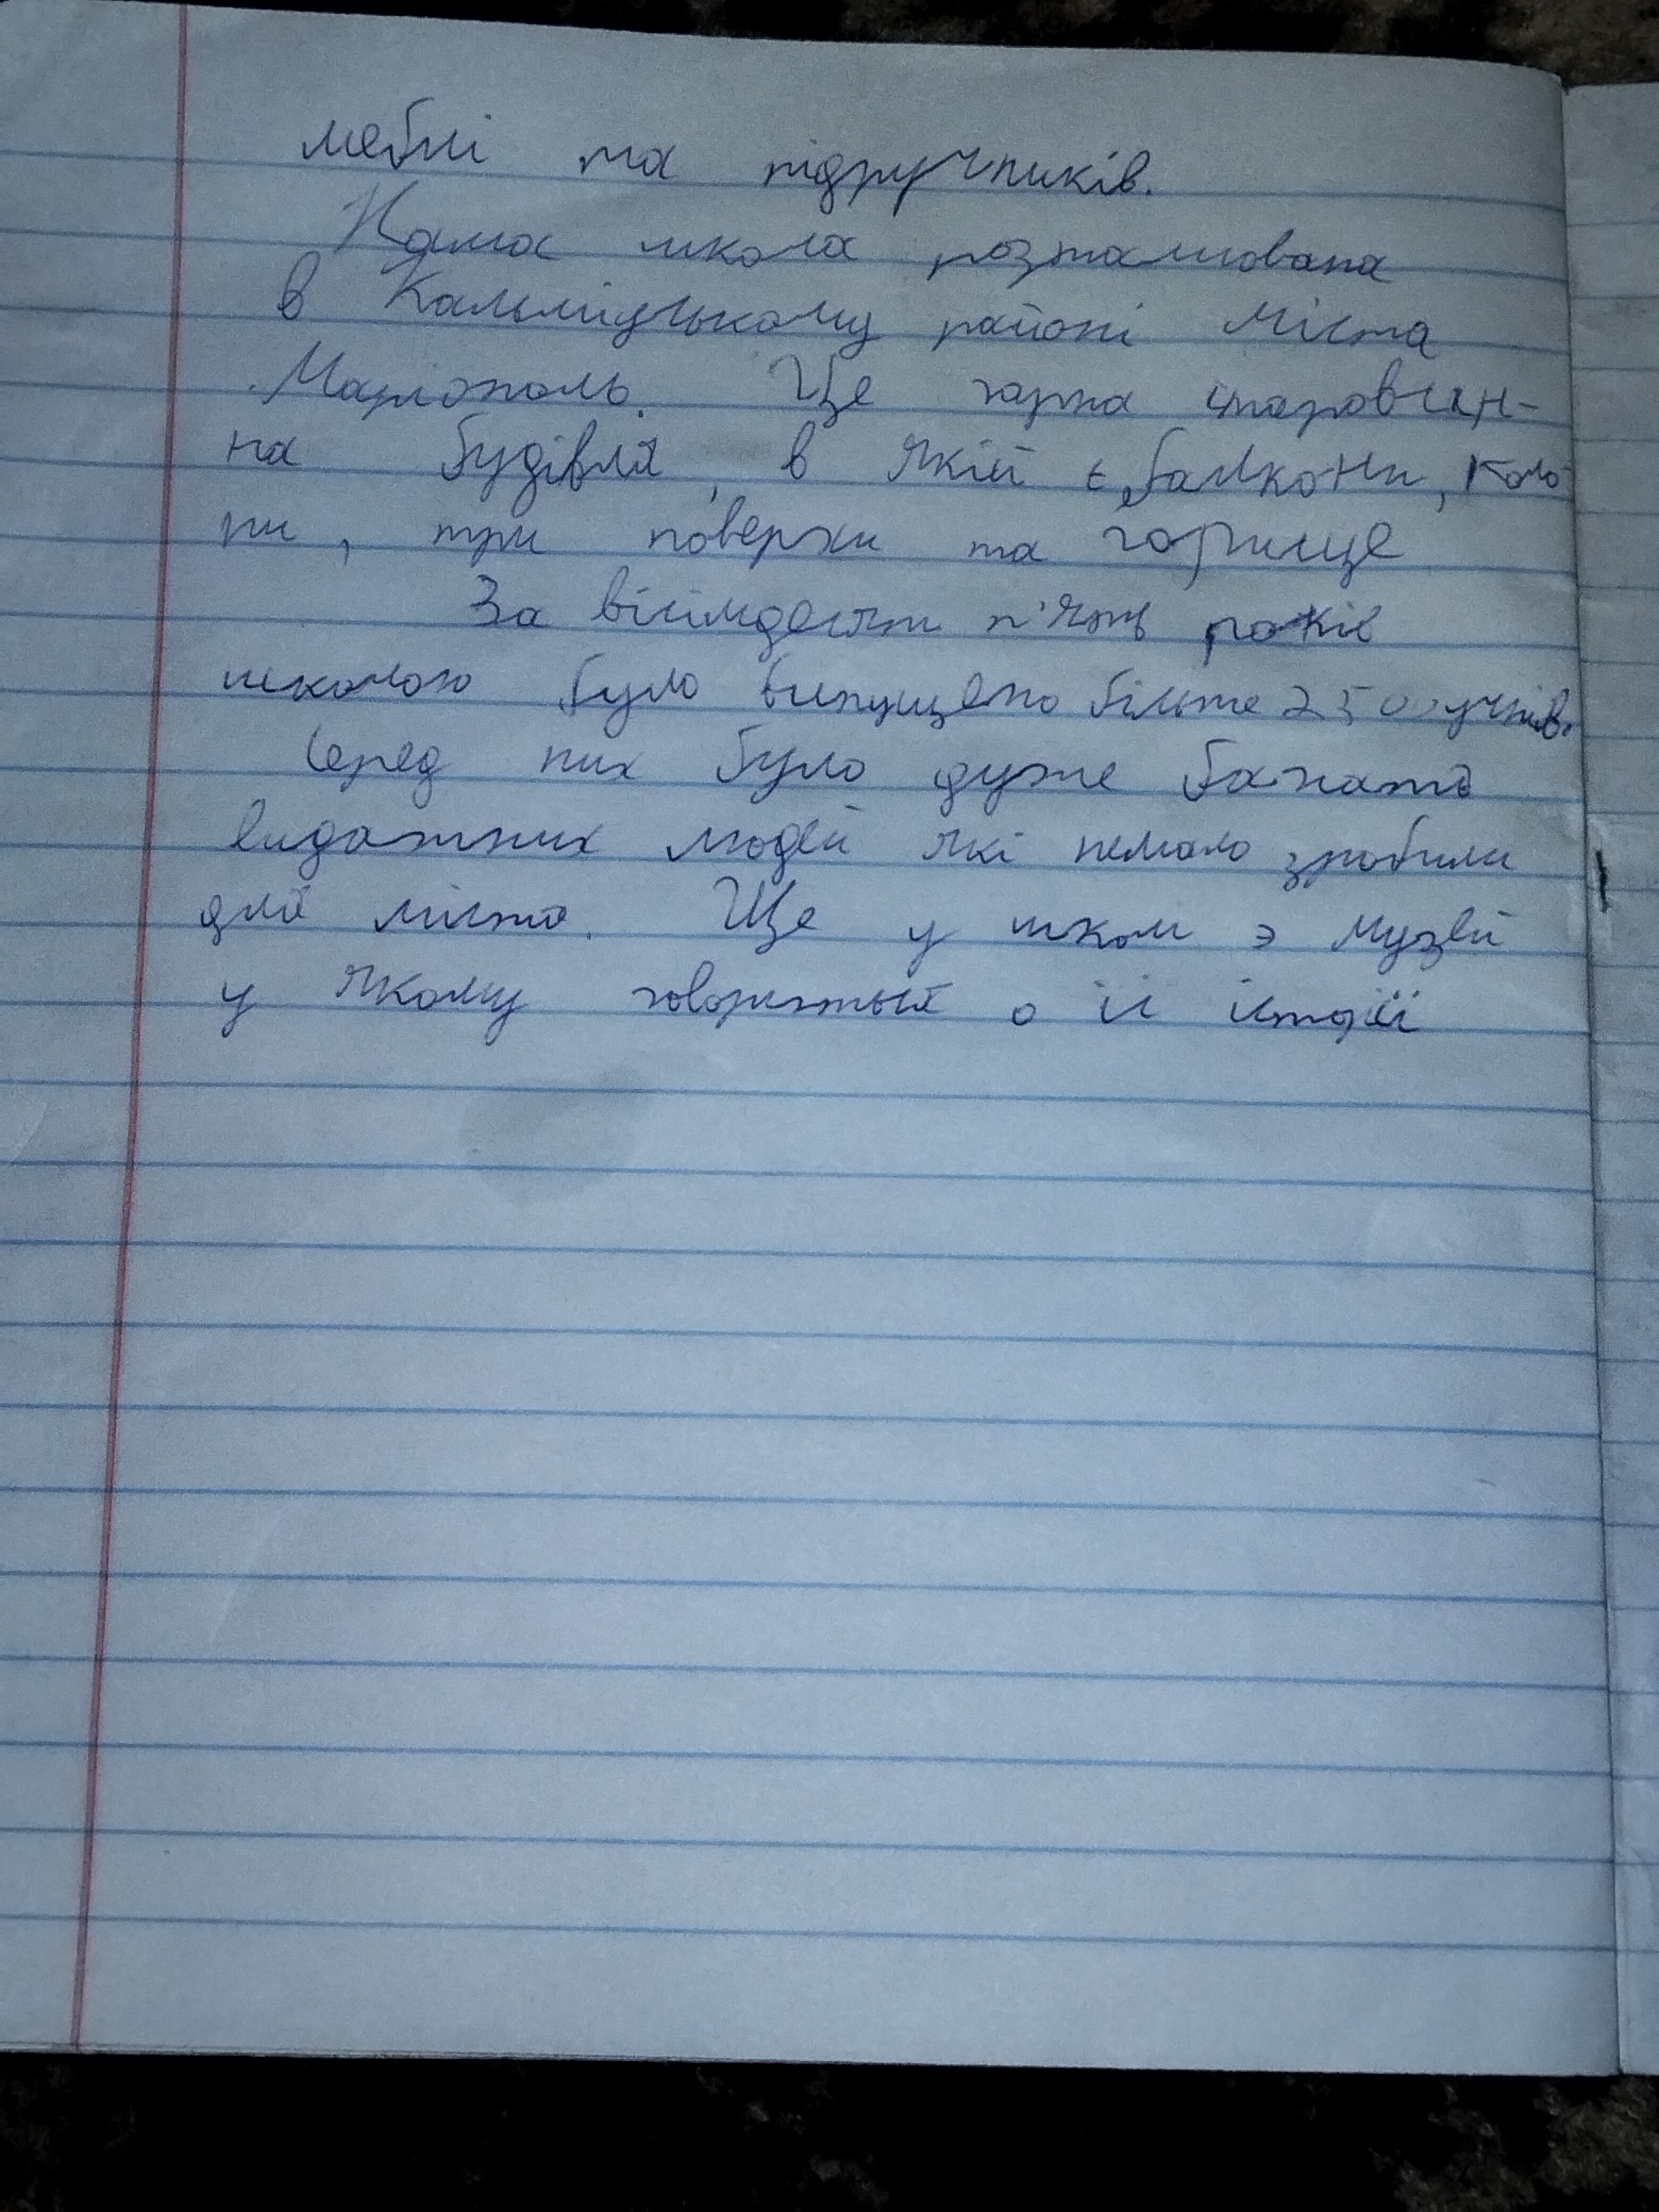 меблі та підручників.
Наша школа розташована
в Кальміуському районі міста
Маріополь. Це гарна старовин-
на будівля, в якій є балкони, коло
ни, три поверхи та горище
За вісімдесят п'ять років
школою було випущено більше 2500 учнів.
Серед них було дуже багато
видатних людей які немало зробили
для міста. Ще у школі э музей
у якому говориться о її історії